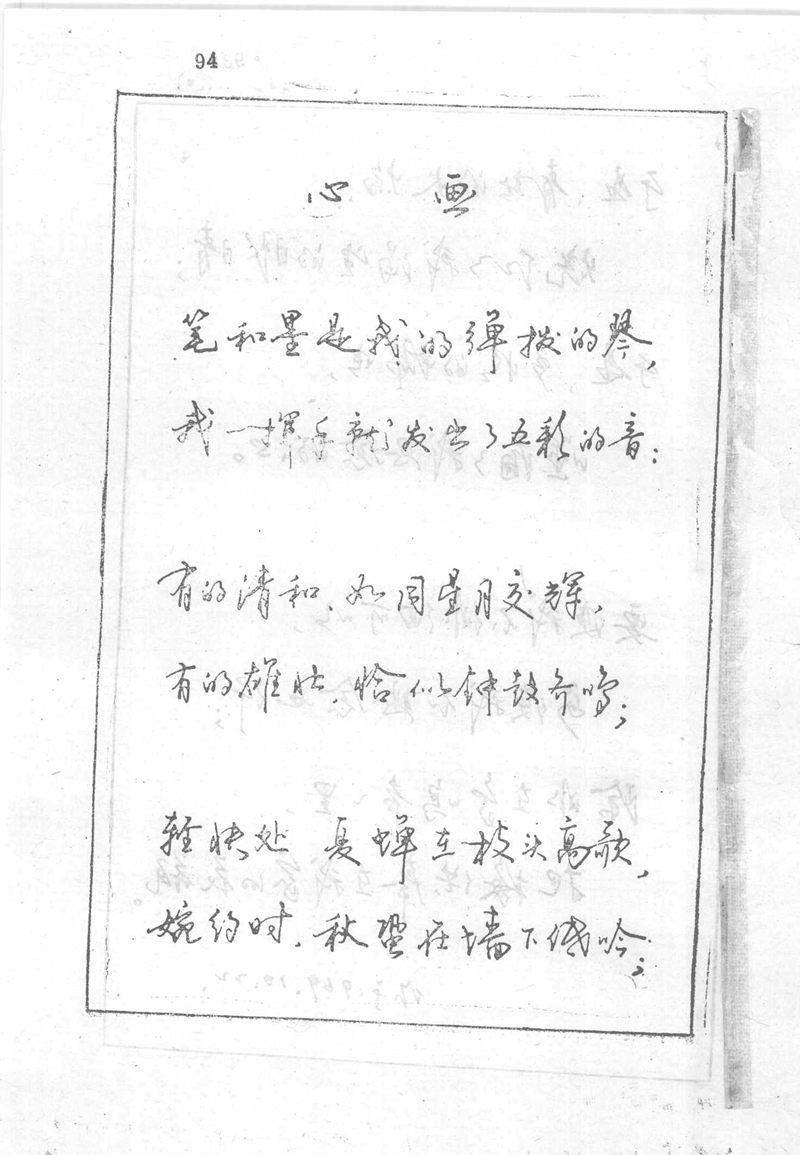 94
心画
笔和墨是我的弹拨的琴,
我一挥手就发出了五彩的音:
有的清和,如同星月交辉,
有的雄壮,恰似钟鼓齐鸣;
轻快处 夏蝉在枝头高歌,
婉约时,秋蛩在墙下低吟;